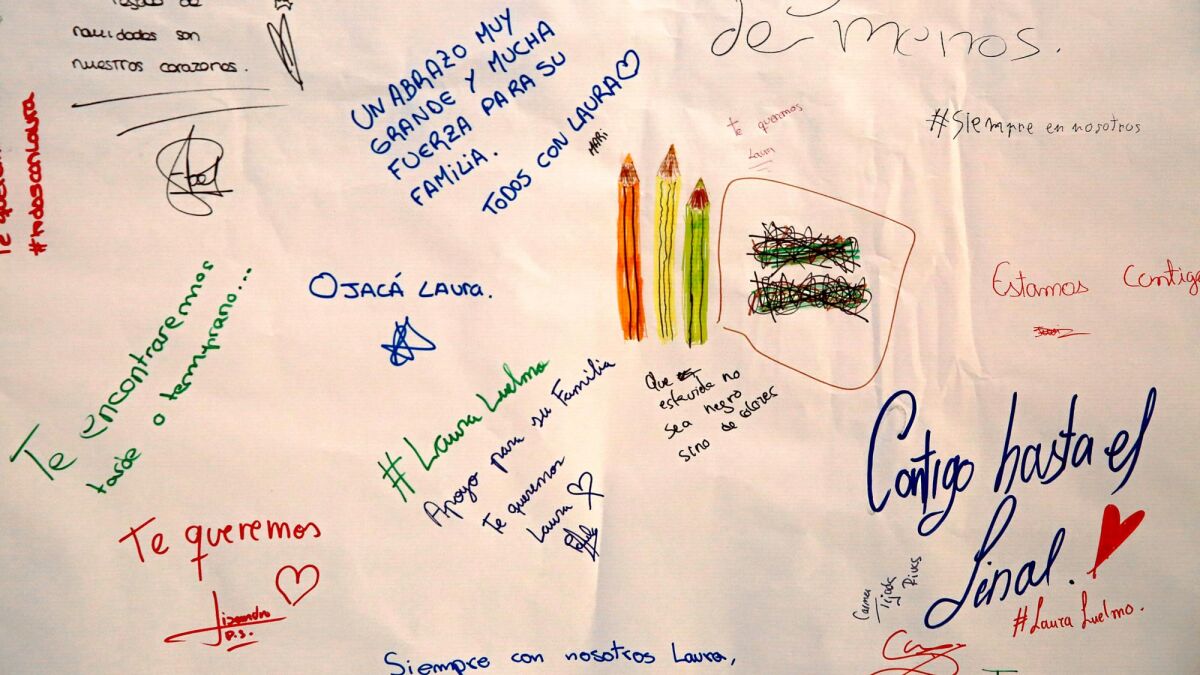 navidados son
nuestros corazones.
Abel
#todosconLaura
UN ABRAZO MUY
GRANDE Y MUCHA
FUERZA PARA SU
FAMILIA.
TODOS CON LAURA
MARI
de menos.
Te queremos
Laura
#Siempre en nosotros
Estamos Contigo
OJACÁ LAURA.
Te encontraremos
tarde o temprano...
#Laura Luelmo
Apoyo para su Familia
Te queremos
Laura
Que
esta vida no
sea negro
sino de colores
Contigo hasta el
final.
#Laura Luelmo.
Carmen
Tijada
Rivas
Te queremos
Lizandro
D.S.
Siempre con nosotros Laura,